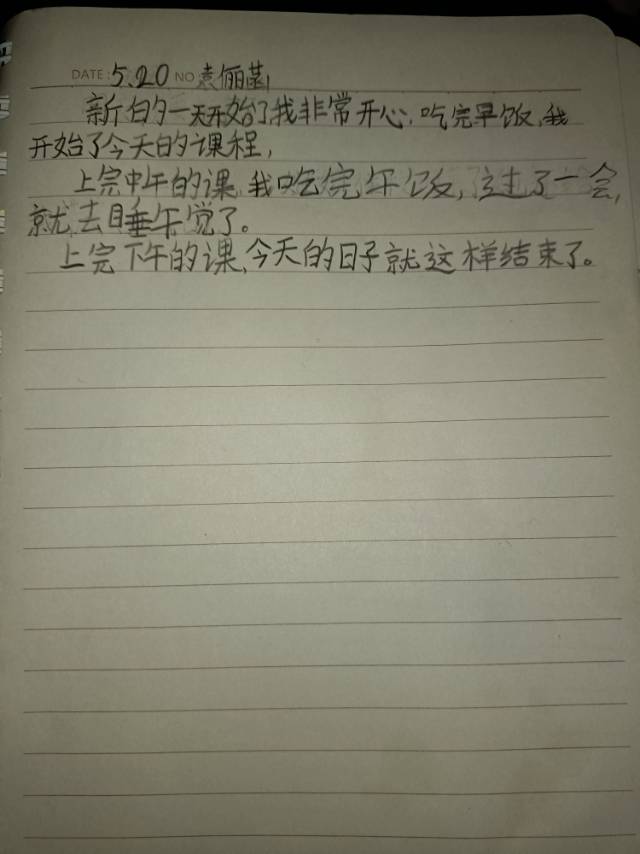 DATE: 5.20 NO 袁俪菡
新的一天开始了,我非常开心,吃完早饭,我
开始了今天的课程,
上完中午的课,我吃完午饭,过了一会,
就去睡午觉了。
上完下午的课,今天的日子就这样结束了。